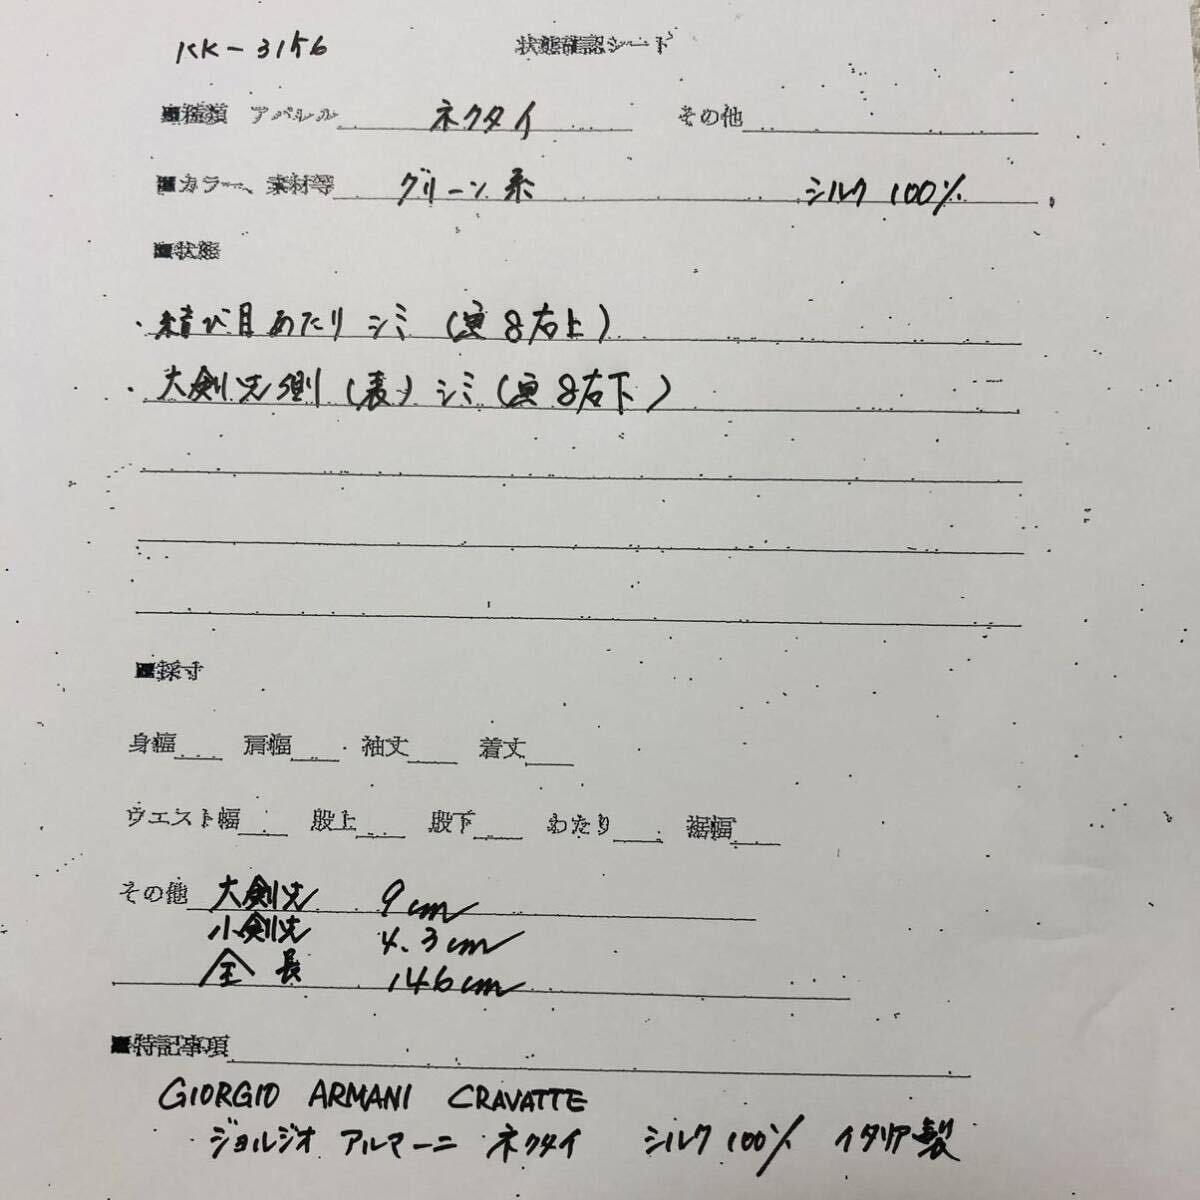 KK-3156 状態確認シート
■種類 アパレル ネクタイ その他
■カラー、素材等 グリーン系 シルク100%
■状態
・結び目あたり シミ (画8右上)
・大剣先側(表)シミ(画8右下)
■採寸
身幅 肩幅 袖丈 着丈
ウエスト幅 股上 股下 わたり 裾幅
その他 大剣先 9cm
小剣先 4.3cm
全長 146cm
■特記事項
GIORGIO ARMANI CRAVATTE
ジョルジオ アルマーニ ネクタイ シルク100% イタリア製